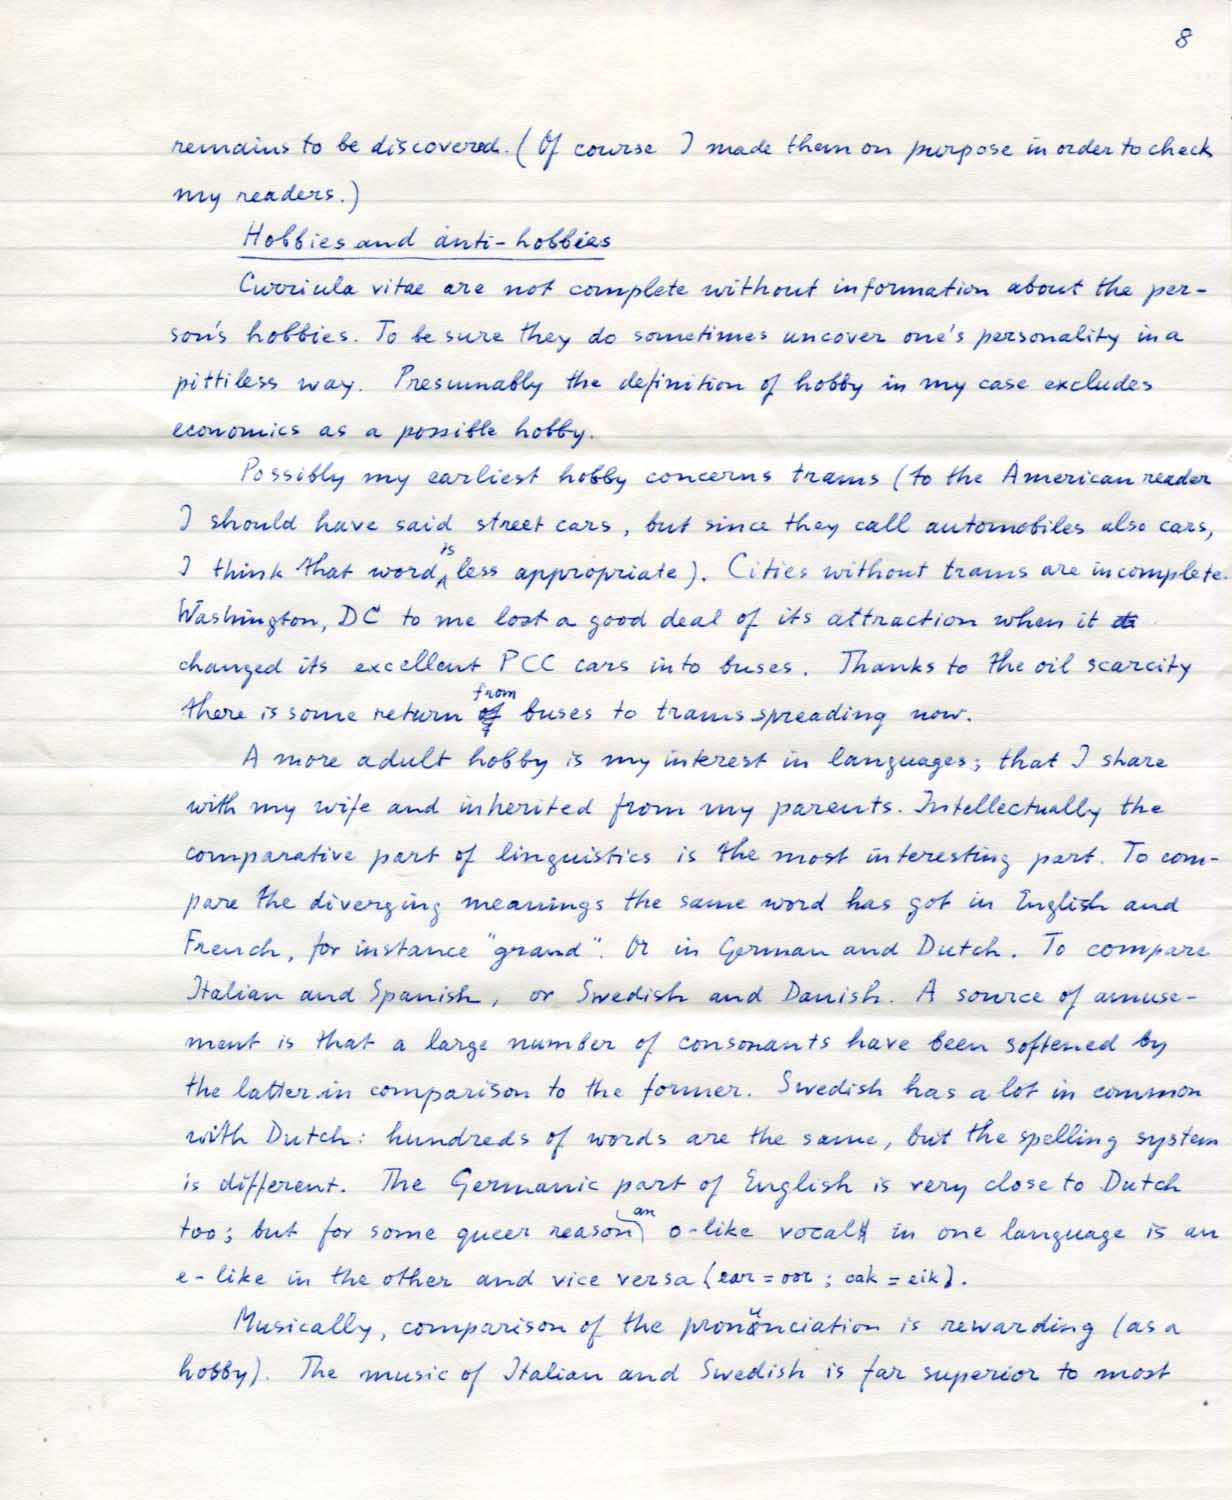 8
remains to be discovered. (Of course I made them on purpose in order to check
my readers.)
Hobbies and anti-hobbies
Curricula vitae are not complete without information about the per-
son's hobbies. To be sure they do sometimes uncover one's personality in a
pittiless way. Presumably the definition of hobby in my case excludes
economics as a possible hobby.
Possibly my earliest hobby concerns trams (to the American reader
I should have said street cars, but since they call automobiles also cars,
I think that word is less appropriate). Cities without trams are incomplete.
Washington, DC to me lost a good deal of its attraction when it
changed its excellent PCC cars into buses. Thanks to the oil scarcity
there is some return from buses to trams spreading now.
A more adult hobby is my interest in languages; that I share
with my wife and inherited from my parents. Intellectually the
comparative part of linguistics is the most interesting part. To com-
pare the diverging meanings the same word has got in English and
French, for instance "grand". Or in German and Dutch. To compare
Italian and Spanish, or Swedish and Danish. A source of amuse-
ment is that a large number of consonants have been softened by
the latter in comparison to the former. Swedish has a lot in common
with Dutch: hundreds of words are the same, but the spelling system
is different. The Germanic part of English is very close to Dutch
too; but for some queer reason an o-like vocal in one language is an
e-like in the other and vice versa (ear = oor; oak = eik).
Musically, comparison of the pronunciation is rewarding (as a
hobby). The music of Italian and Swedish is far superior to most